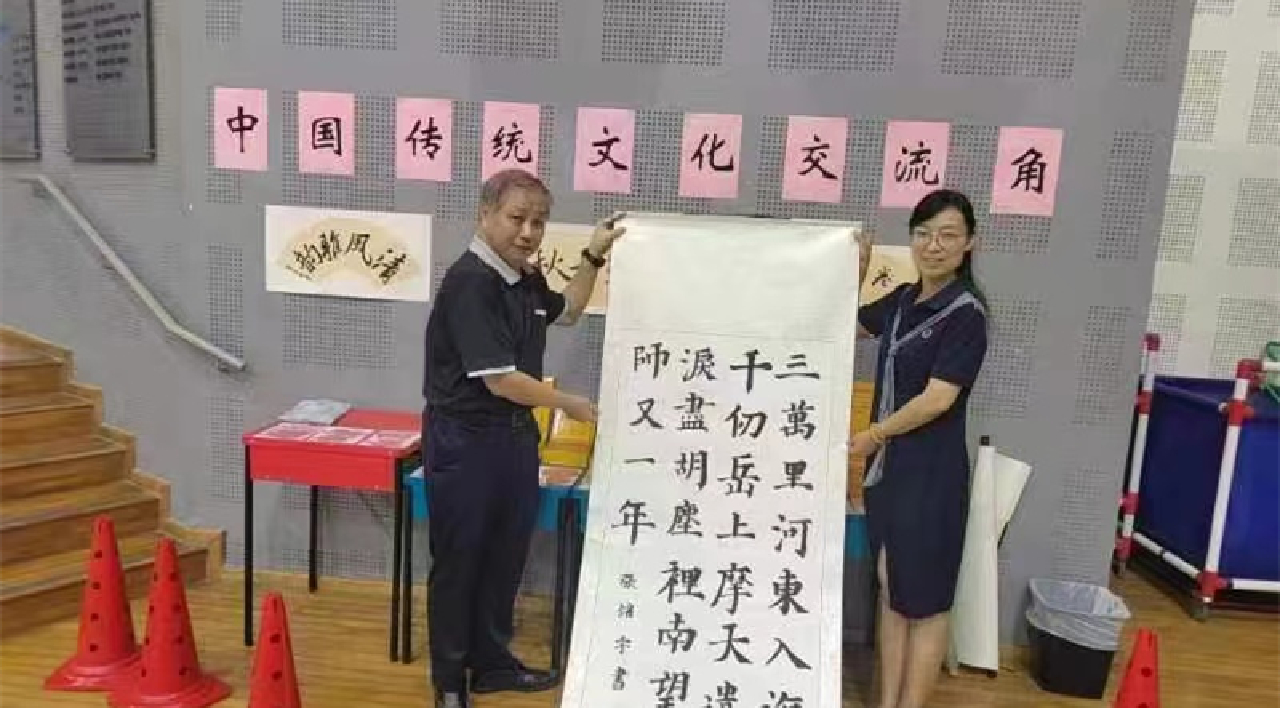 中国传统文化交流角
清风雅韵
三萬里河東入海
千仞岳上摩天遺
淚盡胡塵裡南望
師又一年